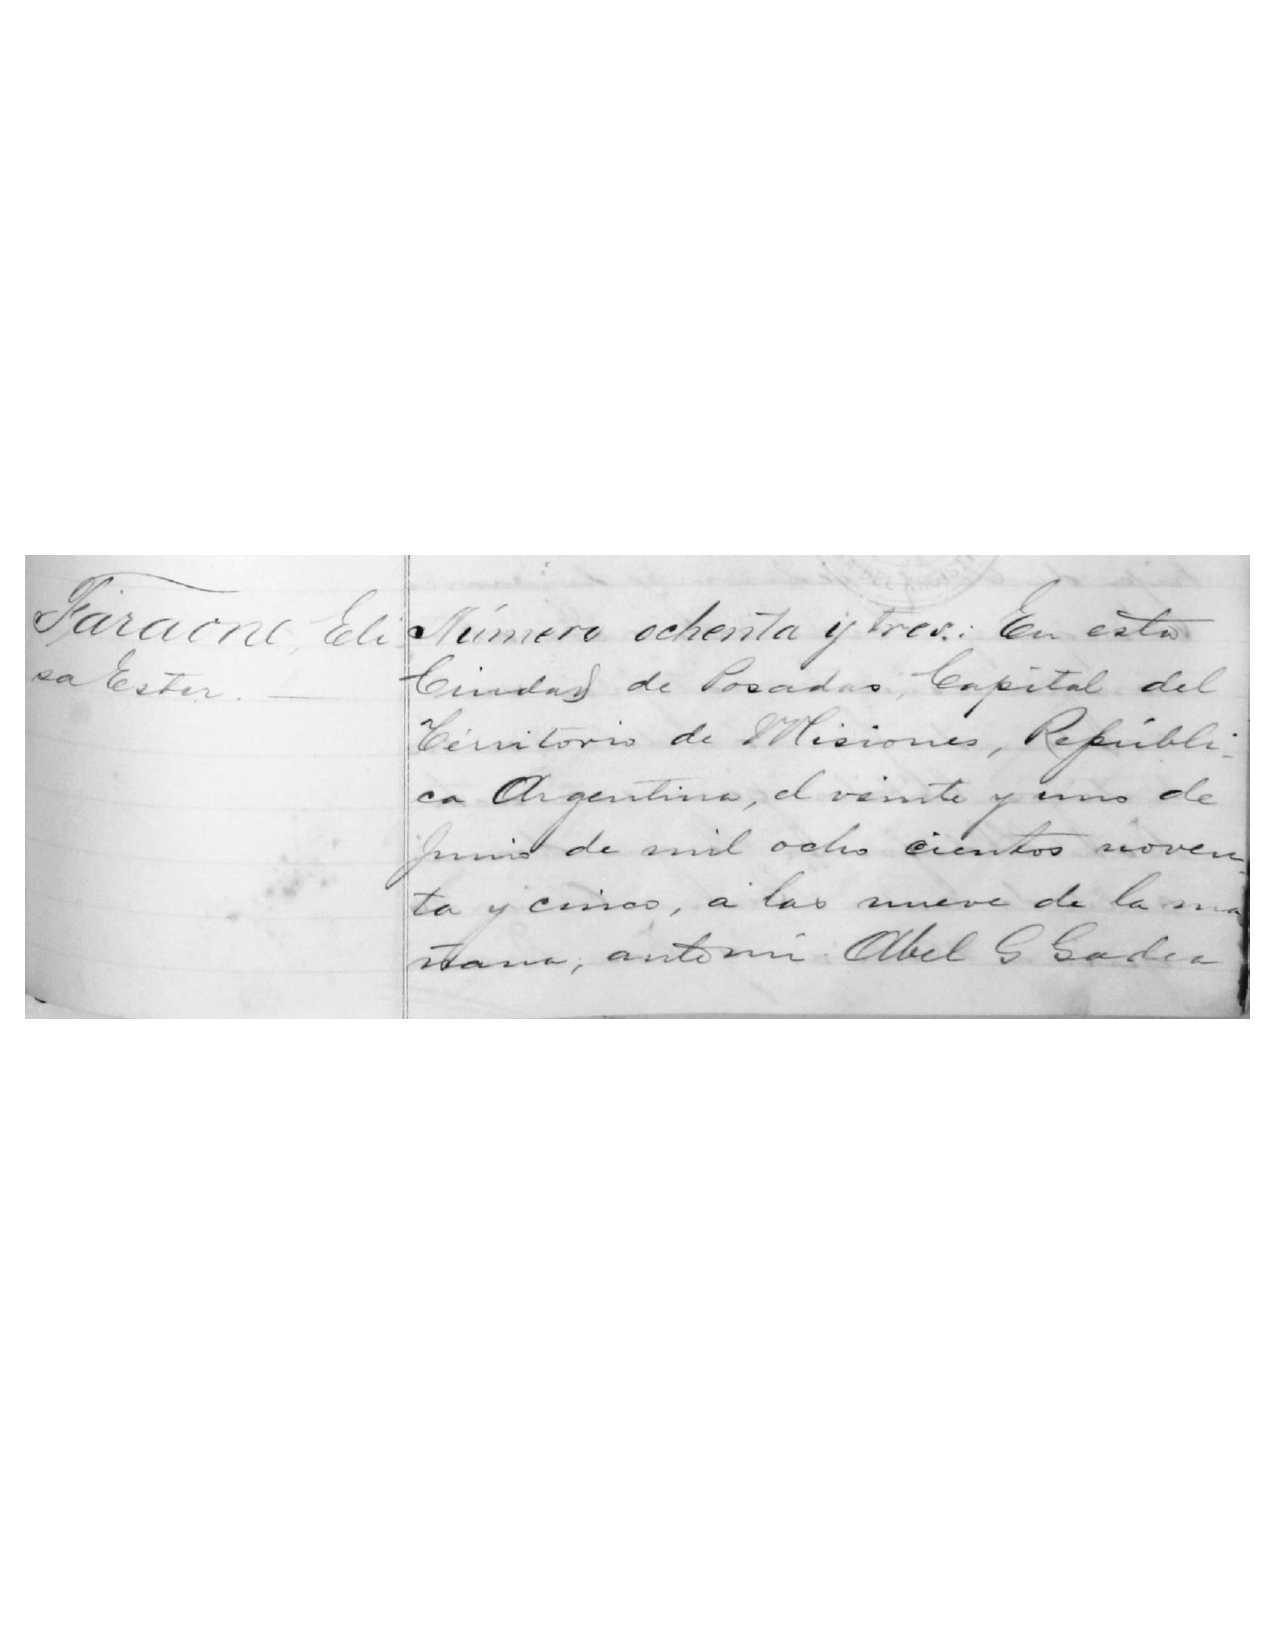 Faraone, Eli
sa Ester. —
Número ochenta y tres.: En esta
Ciudad de Posadas, Capital del
Territorio de Misiones, Repúbli-
ca Argentina, el veinte y uno de
Junio de mil ocho cientos noven-
ta y cinco, á las nueve de la ma
ñana, ante mi Abel G Gadea